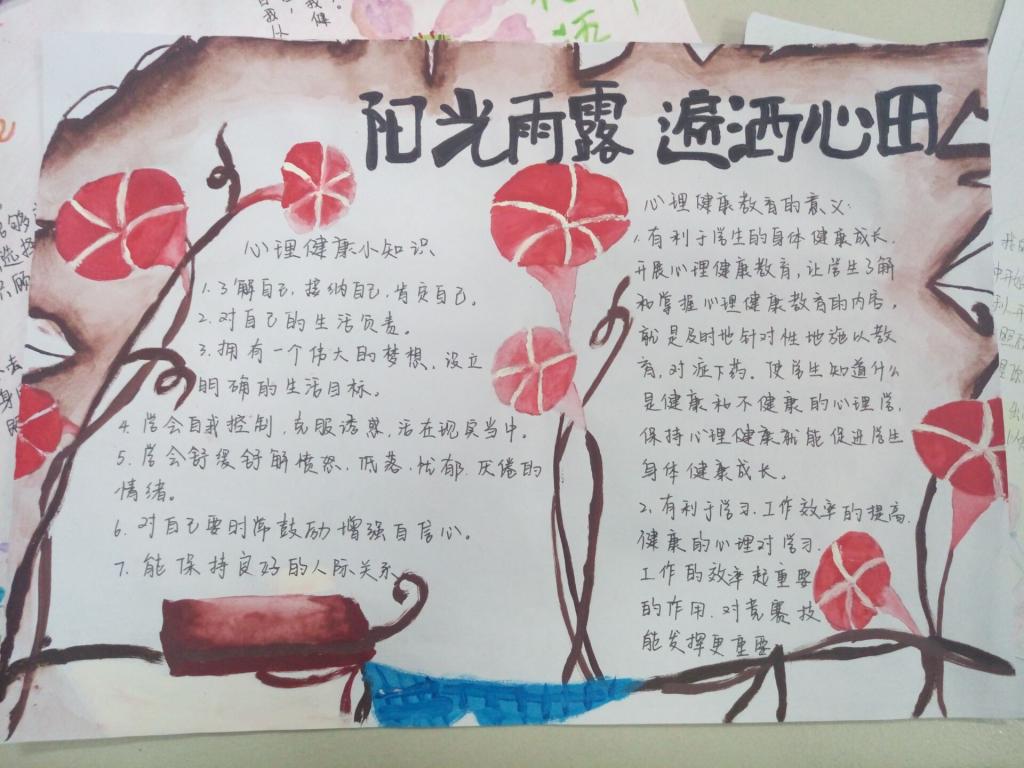 阳光雨露 遍洒心田
心理健康小知识
1.了解自己，接纳自己，肯定自己。
2.对自己的生活负责。
3.拥有一个伟大的梦想、设立
明确的生活目标。
4.学会自我控制，克服诱惑，活在现实当中。
5.学会舒缓舒解愤怒、低落、忧郁、厌倦的
情绪。
6.对自己要时常鼓励增强自信心。
7.能保持良好的人际关系
心理健康教育的意义:
1.有利于学生的身体健康成长.
开展心理健康教育，让学生了解
和掌握心理健康教育的内容，
就是及时地针对性地施以教
育，对症下药。使学生知道什么
是健康和不健康的心理学，
保持心理健康就能促进学生
身体健康成长。
2.有利于学习、工作效率的提高.
健康的心理对学习.
工作的效率起重要
的作用.对竞赛技
能发挥更重要